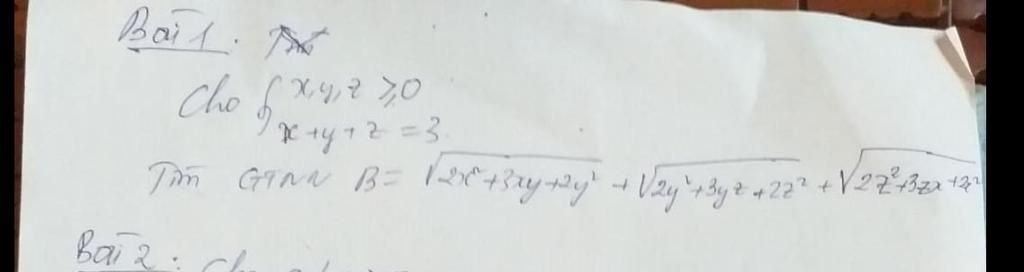 Bài 1.
Cho { x, y, z ≥ 0
x + y + z = 3.
Tìm GTNN B = √(2x²+3xy+2y²) + √(2y²+3yz+2z²) + √(2z²+3zx+2x²)
Bài 2: Cho